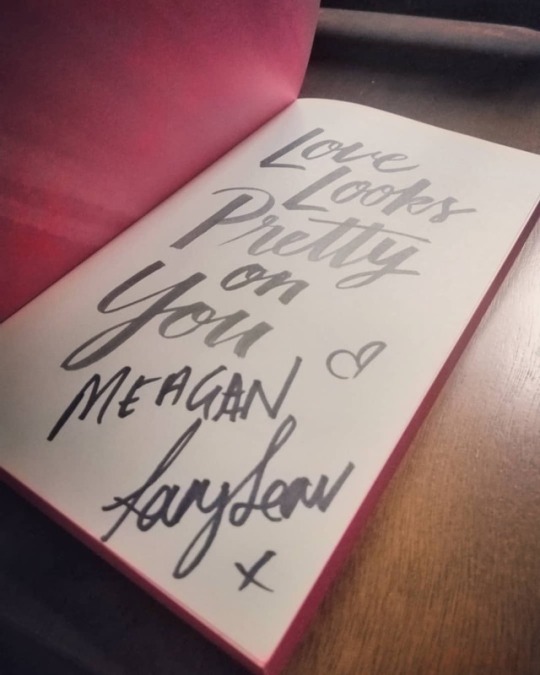 Love
Looks
Pretty
on
You
MEAGAN
Lang Leav
x